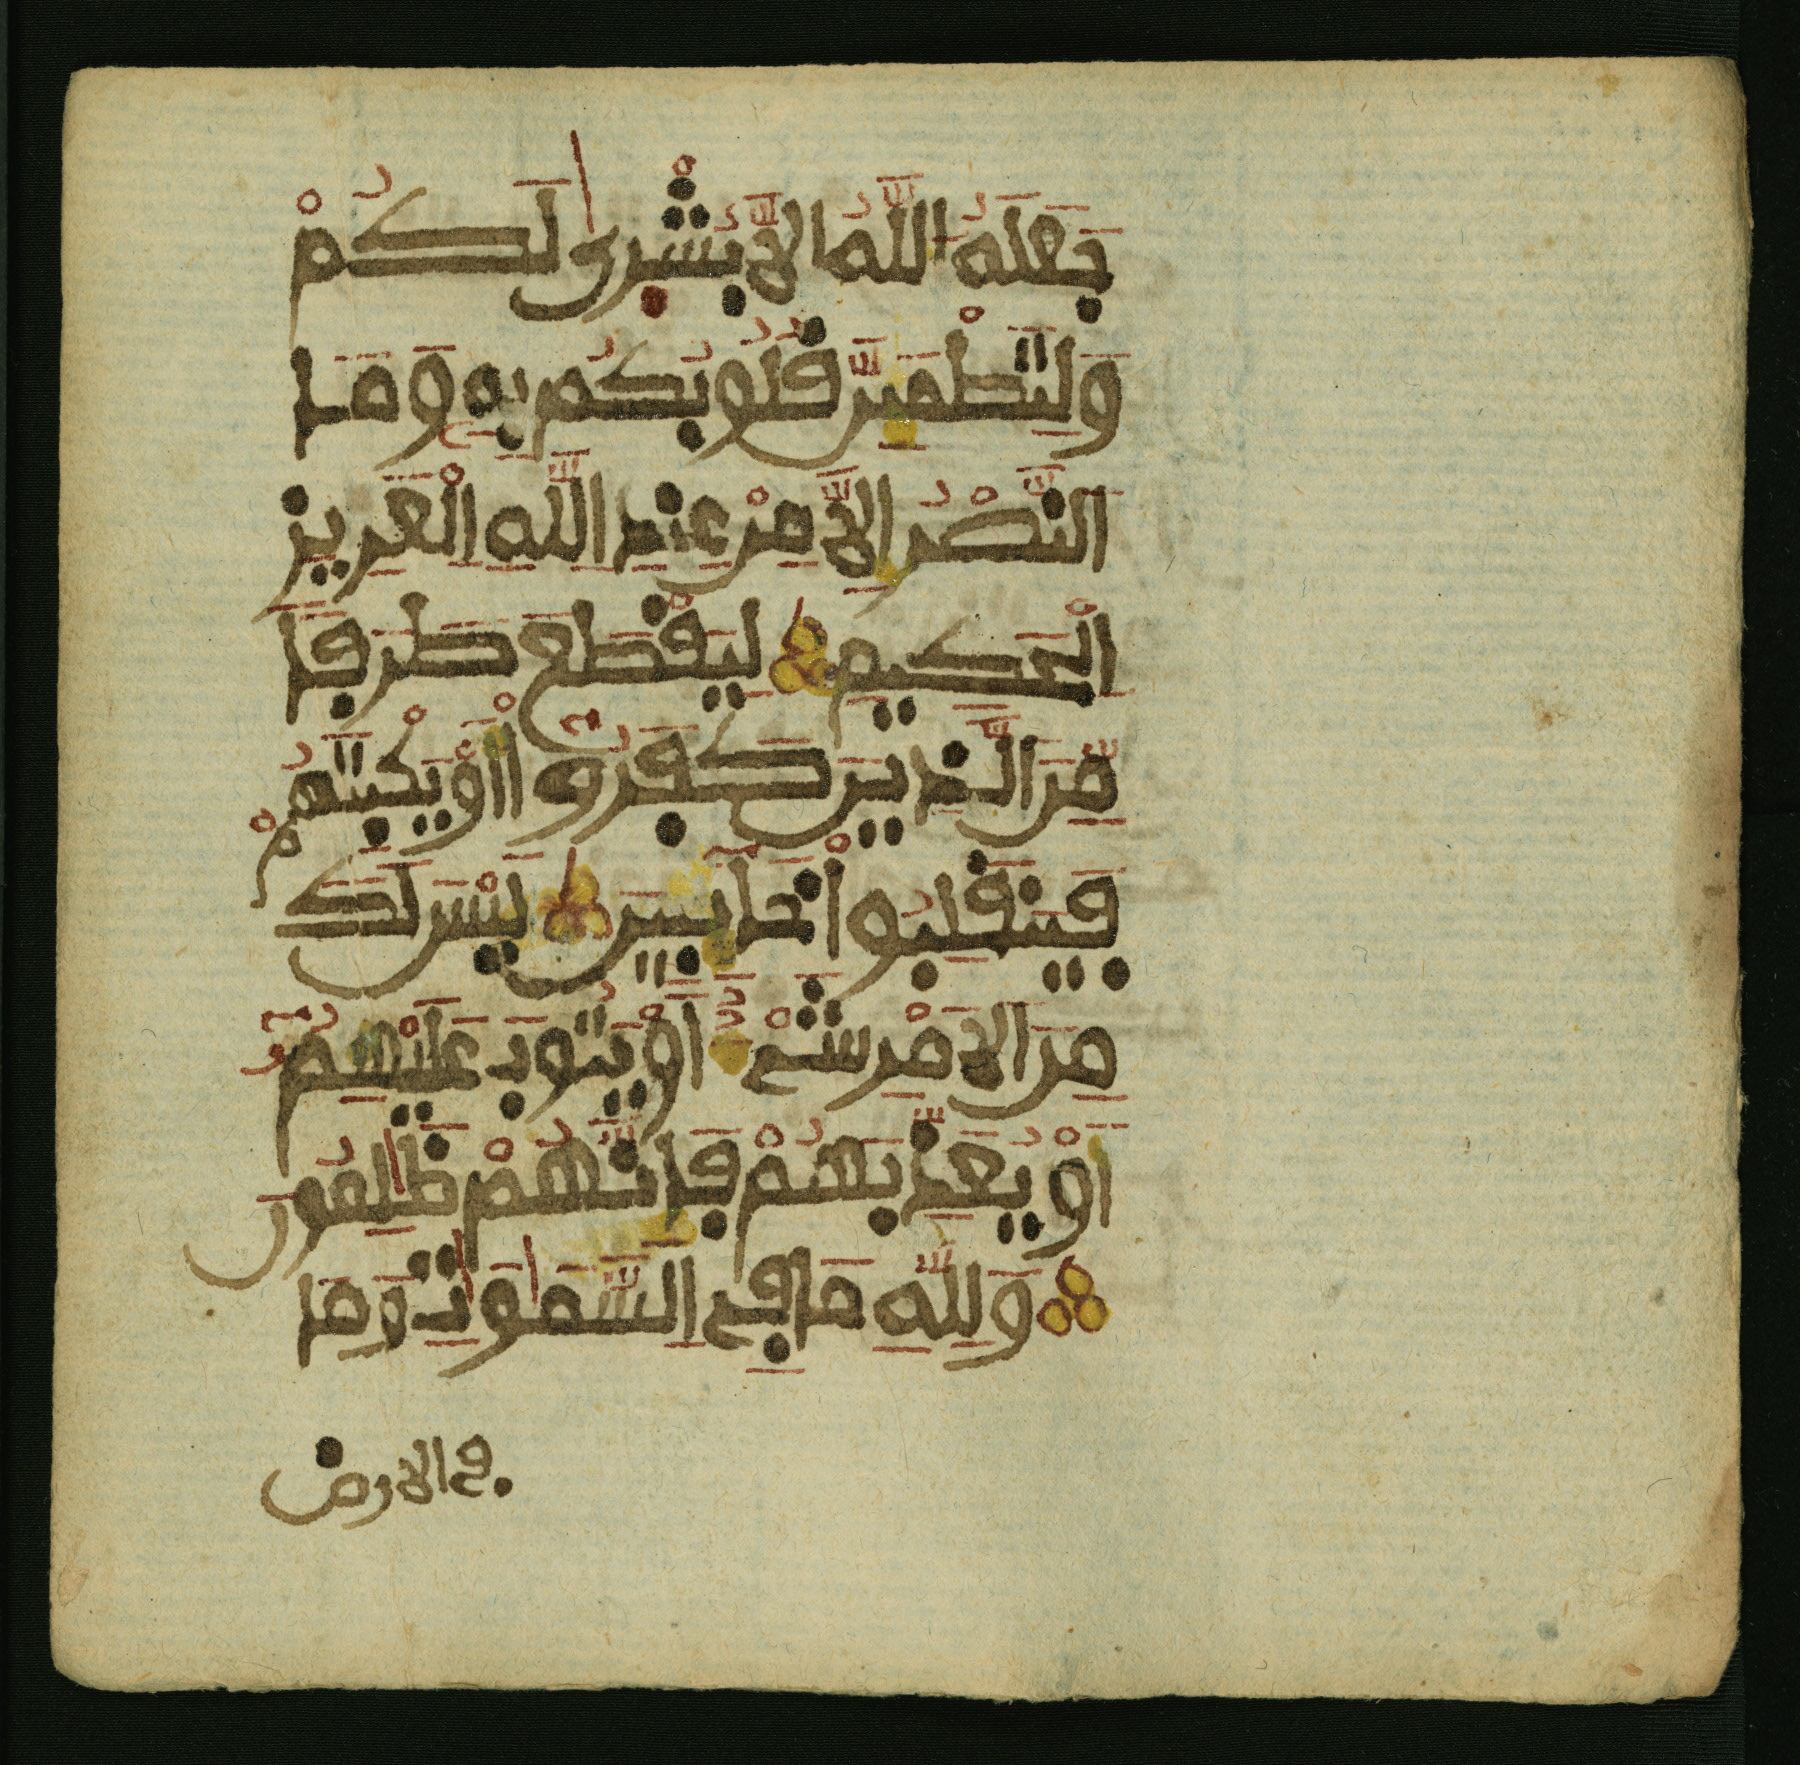 جَعَلَهُ اللَّهُ إِلَّا بُشْرَىٰ لَكُمْ
وَلِتَطْمَئِنَّ قُلُوبُكُم بِهِ وَمَا
النَّصْرُ إِلَّا مِنْ عِندِ اللَّهِ الْعَزِيزِ
الْحَكِيمِ لِيَقْطَعَ طَرَفًا
مِّنَ الَّذِينَ كَفَرُوا أَوْ يَكْبِتَهُمْ
فَيَنقَلِبُوا خَائِبِينَ لَيْسَ لَكَ
مِنَ الْأَمْرِ شَيْءٌ أَوْ يَتُوبَ عَلَيْهِمُ
أَوْ يُعَذِّبَهُمْ فَإِنَّهُمْ ظَٰلِمُونَ
وَلِلَّهِ مَا فِي السَّمَٰوَٰتِ وَمَا
في الارض